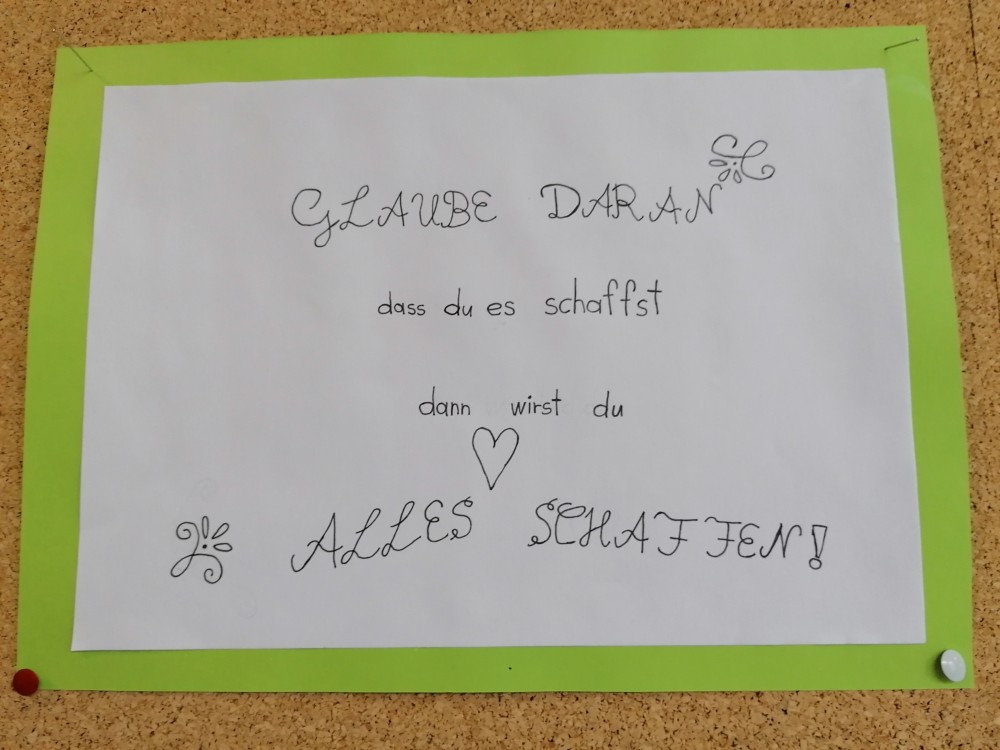 GLAUBE DARAN
dass du es schaffst
dann wirst du
ALLES SCHAFFEN!